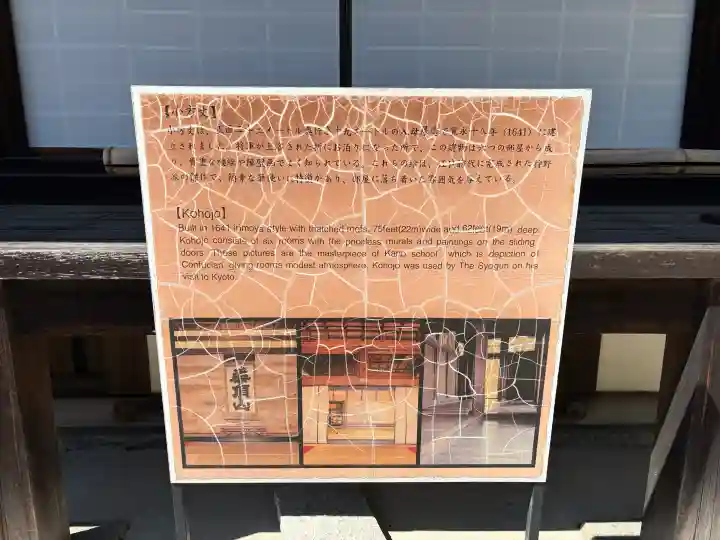 【小方丈】
小方丈は、式四二十二メートル奥行き十九メートルの入母屋造で寛永十八年（1641）に建
立されました。将軍が上洛された折にお泊りになった所で、この建物は六つの部屋から成
り、貴重な襖絵や障壁画でよく知られている。これらの絵は、江戸時代に完成された狩野
派の傑作で、簡素な筆使いに特徴があり、部屋に落ち着いた雰囲気を与えている。
【Kohojo】
Built in 1641 irimoya style with thatched roofs, 75feet(22m)wide and 62feet(19m) deep.
Kohojo consists of six rooms with the priceless murals and paintings on the sliding
doors. These pictures are the masterpiece of Kano school, which is depiction of
Confucian, giving rooms modest atmosphere. Kohojo was used by The Syogun on his
visit to Kyoto.
華頂山